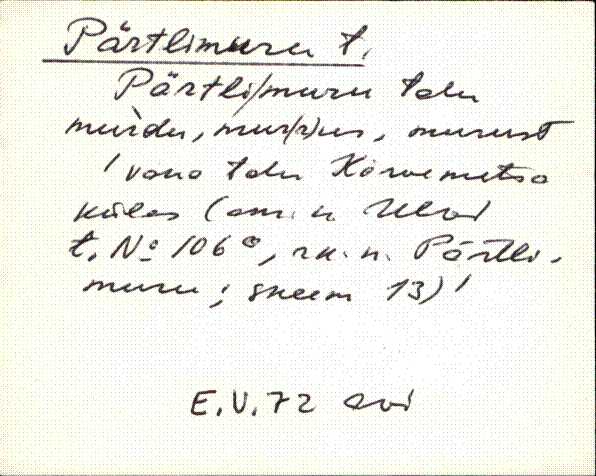 Pärtlimuru t.
Pärtli/muru talu
murdu, mur(r)us, murust
'vana talu Kõrvemetsa
külas (am. n. Ulvi
t. No 106a, rk. n. Pärtli-
muru; skeem 13)'
E.V.72 avi